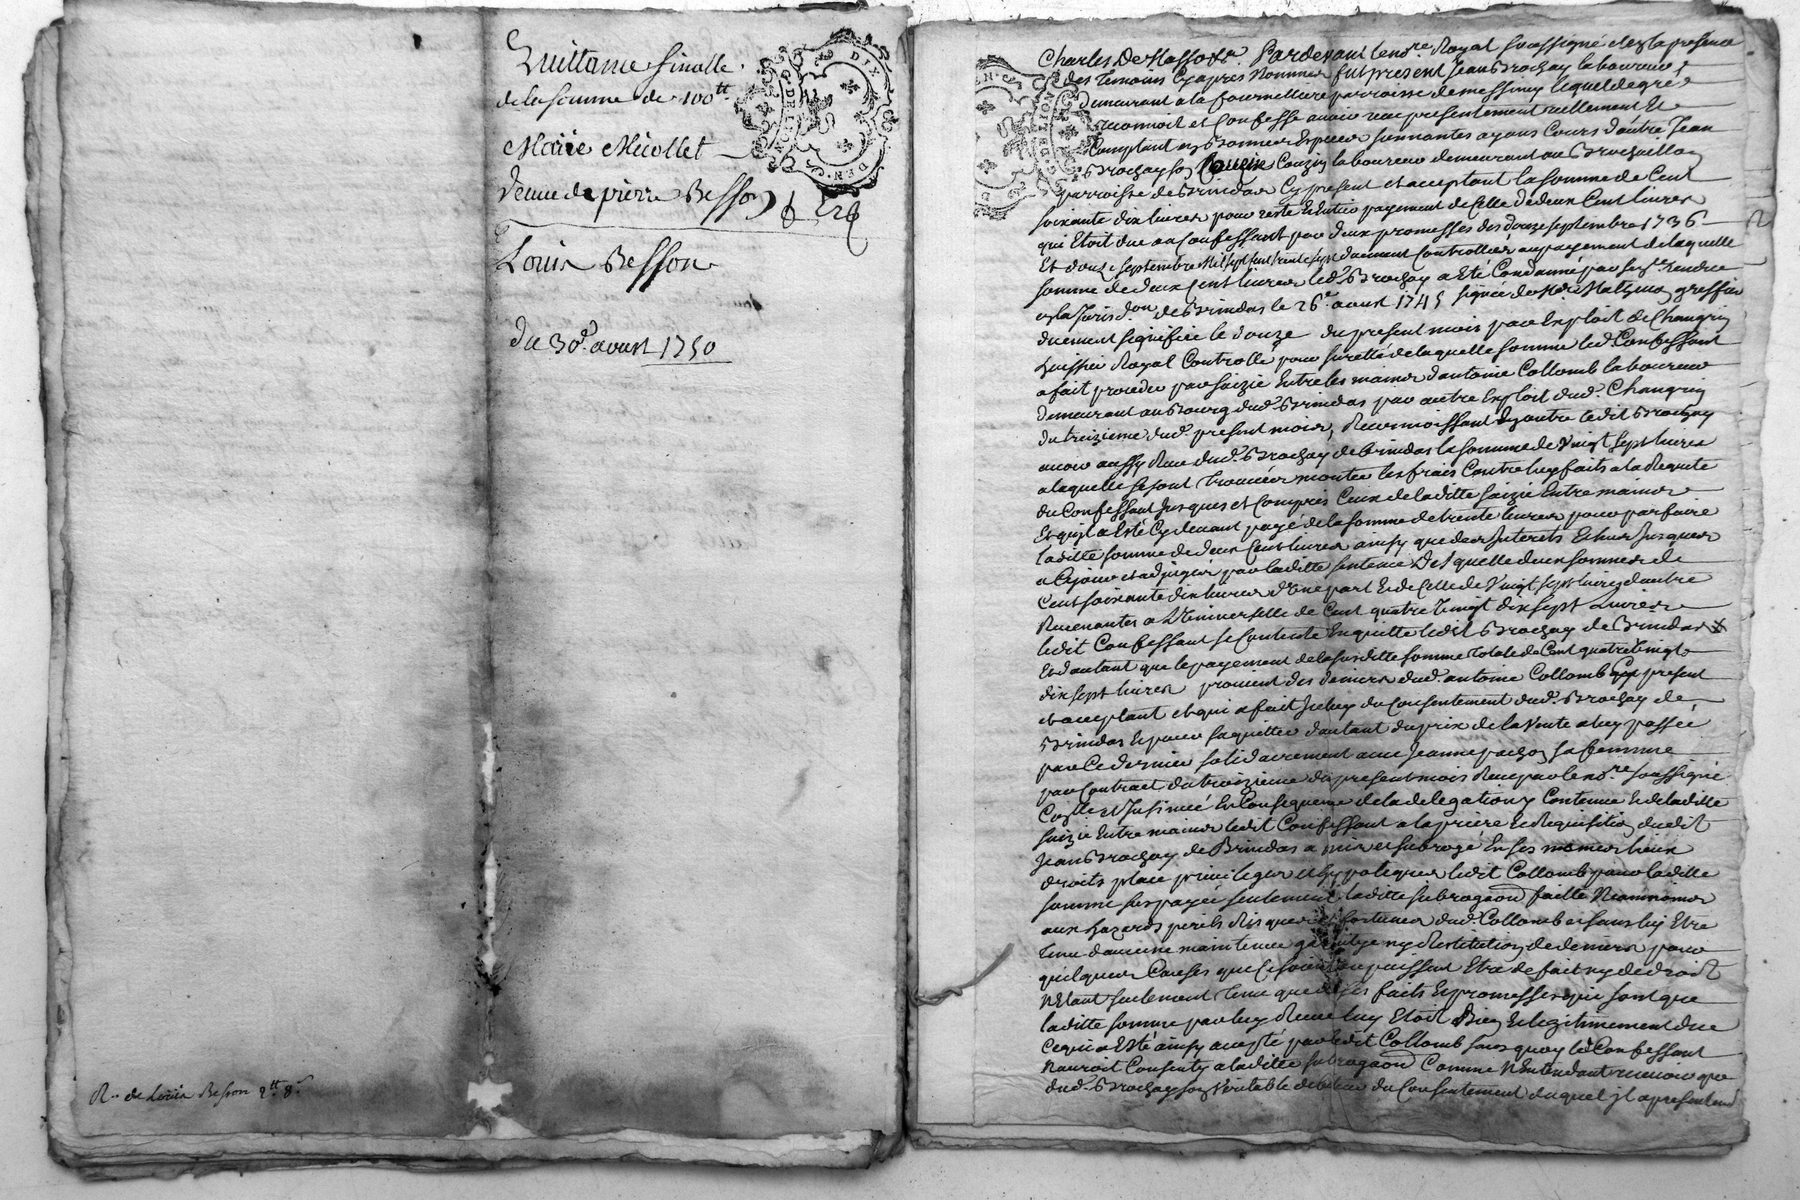 Quittance finalle
de la somme de 100ᵗᵗ
Marie Micollet
veuve de pierre Besson
à
Louis Besson
du 30.ᵉ aoust 1750
R.. de Louis Besson 2.ᵗᵗ 8.ˢ
DIX DEN.
G. DE LION
DEN.
G. DE LION
Charles De Pardevant le no.ʳᵉ Royal soussigné et en la presence
des Temoins cy apres Nommés fut present Jean Brochay laboureur
demeurant a la fournelliere parroisse de messimy lequel de gré
reconnoit et Confesse avoir receu presentement reellement et
Comptant en Bonnes Especes sonnantes ayans Cours d'autre Jean
Brochay son Couzin laboureur demeurant au Brochaillon
parroisse de Brindas Cy present et acceptant la somme de Cent
soixante dix livres pour reste et Entier payement de Celle de deux Cent livres
qui Etoit due au Confessant par deux promesses des douze septembre 1736
Et douze septembre mil sept cent trente sept duement Controllées au payement de laquelle
somme de deux Cent livres led. Brochay a Eté Condanné par sentence rendue
en la Juris.on de Brindas le 26.ᵉ aoust 1745 signée de greffier
duement signifiée le douze du present mois par Exploit de Changrin
huissier Royal Controllé pour sureté de laquelle somme led. Confessant
a fait proceder par saizie Entre les mains d'antoine Collomb laboureur
demeurant au Bourg dud. Brindas par autre Exploit dud. Changrin
du treizieme dud. present mois, Reconnoissant En outre ledit Brochay
avoir aussy Receu dud. Brochay de Brindas la somme de Vingt sept livres
a laquelle se sont trouvées montées les frais Contre luy faits a la Requete
du Confessant Jusques et Compris Ceux de laditte saizie Entre mains
Et quil a Eté Cy devant payé de la somme de trente livres pour parfaire
laditte somme de deux Cent livres ainsy que des Interets Echus Jusques
a Ce jour et adjugés par laditte sentence Desquelles deux sommes de
Cent soixante dix livres d'une part Et de Celle de Vingt sept livres d'autre
Revenantes a L'universelle de Cent quatre Vingt dix sept Livres
ledit Confessant se Contente En quitte ledit Brochay de Brindas
Et d'autant que le payement de la susditte somme totale de Cent quatre Vingt
dix sept livres provient des deniers dud. antoine Collomb Cy present
et acceptant et qui a fait Iceluy du Consentement dud. Brochay de
Brindas Et pour s'aquitter d'autant du prix de la Vente a luy passée
par Ce dernier solidairement avec Jeanne pachon sa femme
par Contract du treizieme du present mois Receu par le no.ʳᵉ soussigné
Con.ˡˡᵉ et Insinué En Consequence de la delegation y Contenue Et de laditte
saizie Entre mains ledit Confessant a la priere Et Requisition dudit
Jean Brochay de Brindas a mis et subrogé En ses memes lieux
droits place privileges et hypoteques ledit Collomb pour laditte
somme sus payée seulement laditte subrogaon faitte Neanmoins
aux hazards perils Risques et fortunes dud. Collomb et sans luy Etre
tenu d'aucune maintenue garantye ny Restitution de deniers pour
quelques Causes que Ce soient ou puissent Etre de fait ny de droit
N'Etant seulement tenu que de ses faits Et promesses qui sont que
laditte somme par luy Receue luy Etoit Bien Et legitimement due
Ce qui a Eté ainsy accepté par ledit Collomb sans quoy led. Confessant
N'auroit Consenty a laditte subrogaon Comme N'Entendant recevoir que
dud. Brochay son Veritable debiteur du Consentement duquel jl a presentem.